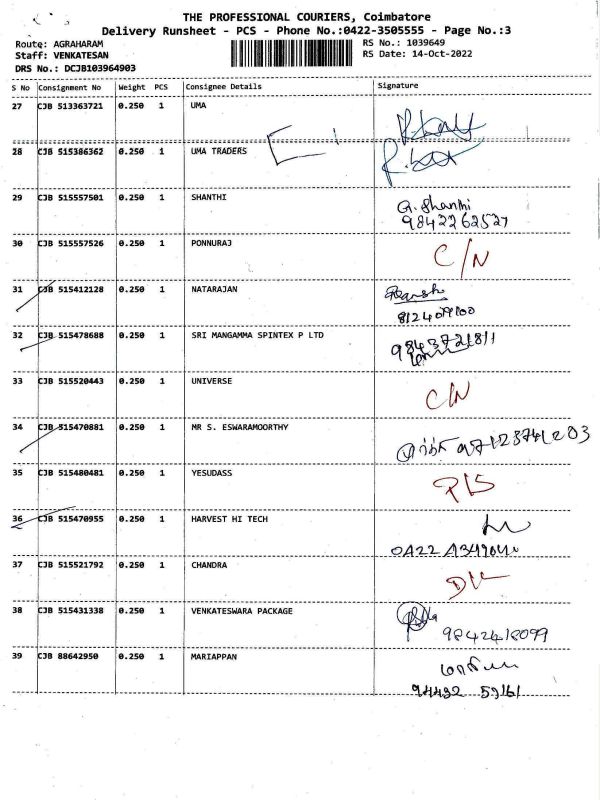 THE PROFESSIONAL COURIERS, Coimbatore
Delivery Runsheet - PCS - Phone No.:0422-3505555 - Page No.:3
Route: AGRAHARAM
RS No.: 1039649
Staff: VENKATESAN
RS Date: 14-Oct-2022
DRS No.: DCJB103964903
S No Consignment No Weight PCS Consignee Details Signature
27 CJB 513363721 0.250 1 UMA
28 CJB 515386362 0.250 1 UMA TRADERS
29 CJB 515557501 0.250 1 SHANTHI G. Shanthi
9842262527
30 CJB 515557526 0.250 1 PONNURAJ C/N
31 CJB 515412128 0.250 1 NATARAJAN
32 CJB 515478688 0.250 1 SRI MANGAMMA SPINTEX P LTD
9843721811
33 CJB 515520443 0.250 1 UNIVERSE C/N
34 CJB 515470881 0.250 1 MR S. ESWARAMOORTHY
35 CJB 515480481 0.250 1 YESUDASS
36 CJB 515470955 0.250 1 HARVEST HI TECH
37 CJB 515521792 0.250 1 CHANDRA D/L
38 CJB 515431338 0.250 1 VENKATESWARA PACKAGE
9842418099
39 CJB 88642950 0.250 1 MARIAPPAN
94432 59161